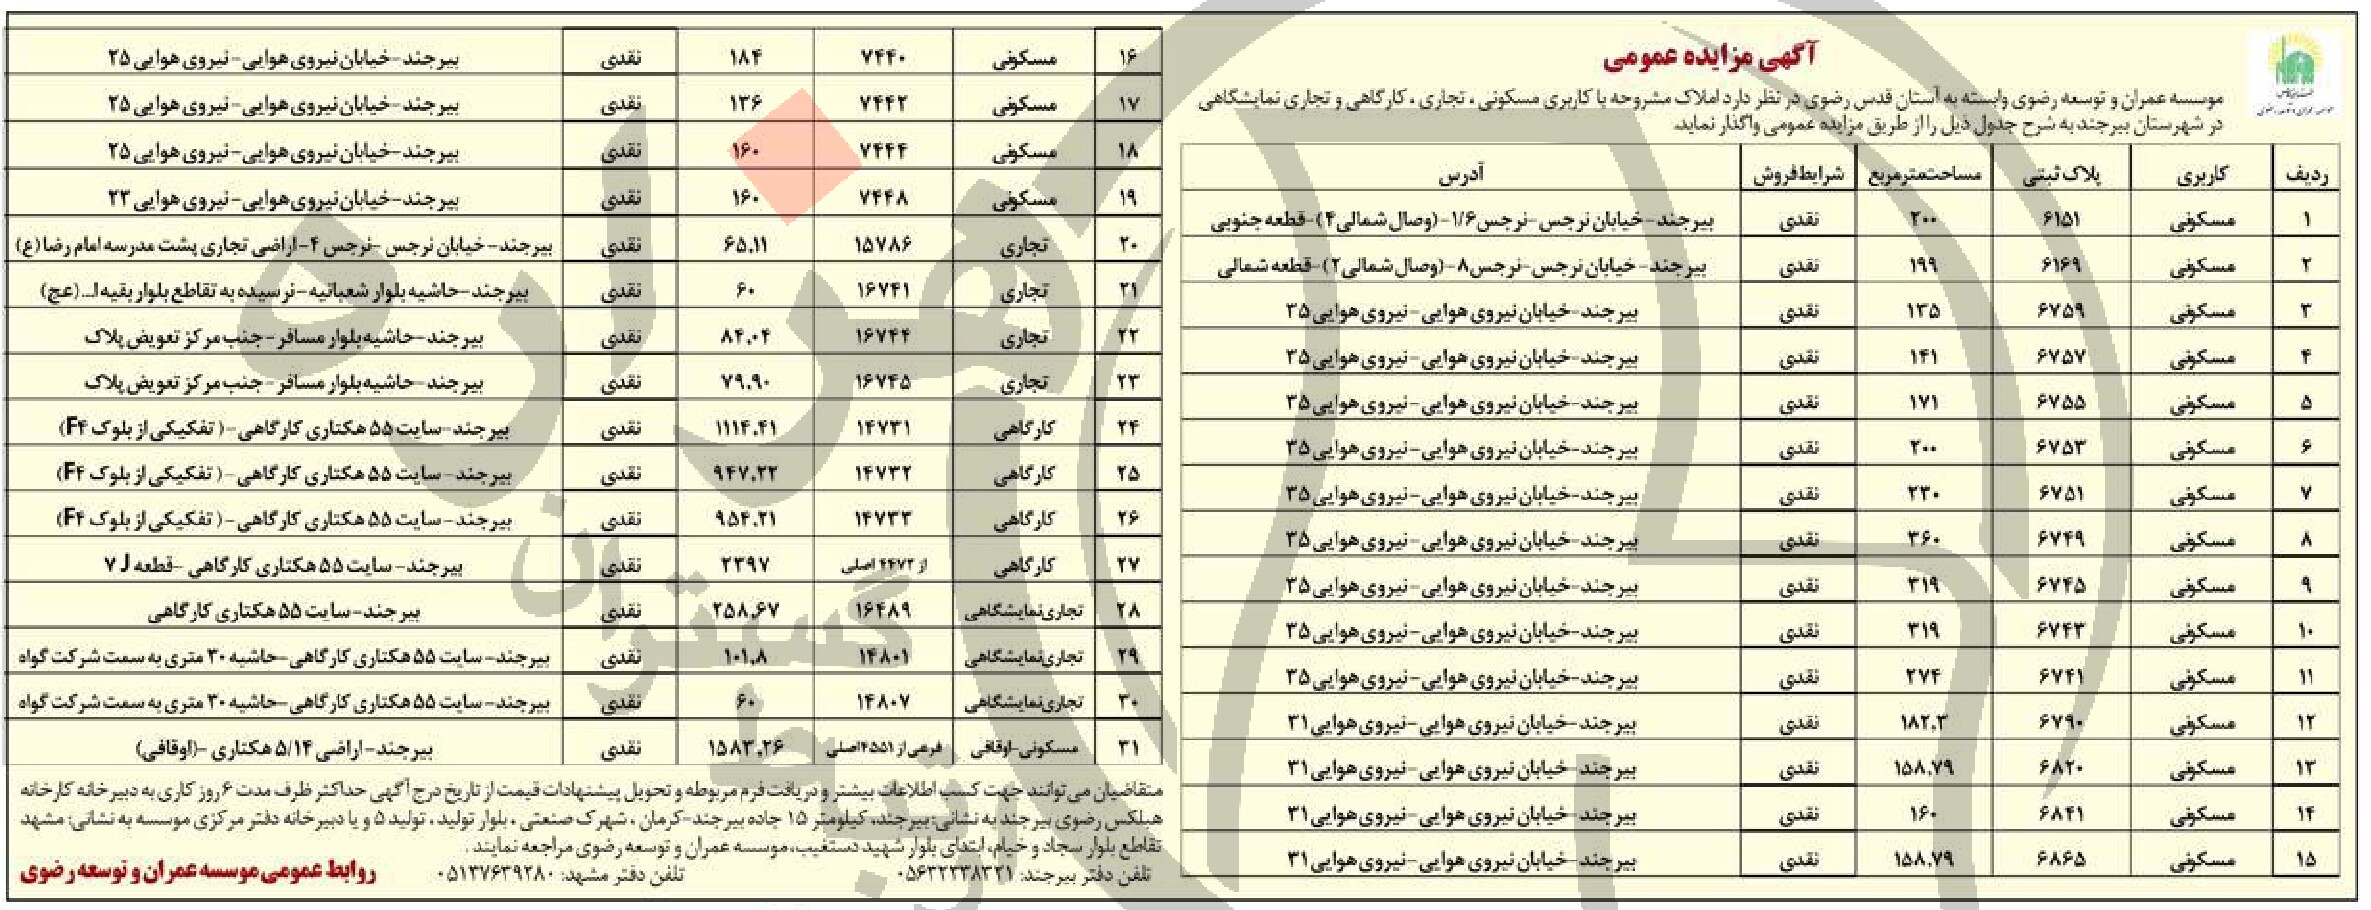 آگهی مزایده عمومی
موسسه عمران و توسعه رضوی وابسته به آستان قدس رضوی در نظر دارد املاک مشروحه با کاربری مسکونی ، تجاری ، کارگاهی و تجاری نمایشگاهی
در شهرستان بیرجند به شرح جدول ذیل را از طریق مزایده عمومی واگذار نماید.
ردیف کاربری پلاک ثبتی مساحت‌مترمربع شرایط‌فروش آدرس
۱ مسکونی ۶۱۵۱ ۲۰۰ نقدی بیرجند-خیابان نرجس-نرجس۱/۶-(وصال شمالی۴)-قطعه جنوبی
۲ مسکونی ۶۱۶۹ ۱۹۹ نقدی بیرجند-خیابان نرجس-نرجس۸-(وصال شمالی۲)-قطعه شمالی
۳ مسکونی ۶۷۵۹ ۱۳۵ نقدی بیرجند-خیابان نیروی هوایی-نیروی هوایی۳۵
۴ مسکونی ۶۷۵۷ ۱۴۱ نقدی بیرجند-خیابان نیروی هوایی-نیروی هوایی۳۵
۵ مسکونی ۶۷۵۵ ۱۷۱ نقدی بیرجند-خیابان نیروی هوایی-نیروی هوایی۳۵
۶ مسکونی ۶۷۵۳ ۲۰۰ نقدی بیرجند-خیابان نیروی هوایی-نیروی هوایی۳۵
۷ مسکونی ۶۷۵۱ ۲۳۰ نقدی بیرجند-خیابان نیروی هوایی-نیروی هوایی۳۵
۸ مسکونی ۶۷۴۹ ۳۶۰ نقدی بیرجند-خیابان نیروی هوایی-نیروی هوایی۳۵
۹ مسکونی ۶۷۴۵ ۳۱۹ نقدی بیرجند-خیابان نیروی هوایی-نیروی هوایی۳۵
۱۰ مسکونی ۶۷۴۳ ۳۱۹ نقدی بیرجند-خیابان نیروی هوایی-نیروی هوایی۳۵
۱۱ مسکونی ۶۷۴۱ ۲۷۴ نقدی بیرجند-خیابان نیروی هوایی-نیروی هوایی۳۵
۱۲ مسکونی ۶۷۹۰ ۱۸۲.۳ نقدی بیرجند-خیابان نیروی هوایی-نیروی هوایی۳۱
۱۳ مسکونی ۶۸۲۰ ۱۵۸.۷۹ نقدی بیرجند-خیابان نیروی هوایی-نیروی هوایی۳۱
۱۴ مسکونی ۶۸۴۱ ۱۶۰ نقدی بیرجند-خیابان نیروی هوایی-نیروی هوایی۳۱
۱۵ مسکونی ۶۸۶۵ ۱۵۸.۷۹ نقدی بیرجند-خیابان نیروی هوایی-نیروی هوایی۳۱
۱۶ مسکونی ۷۴۴۰ ۱۸۴ نقدی بیرجند-خیابان نیروی هوایی-نیروی هوایی ۲۵
۱۷ مسکونی ۷۴۴۲ ۱۳۶ نقدی بیرجند-خیابان نیروی هوایی-نیروی هوایی ۲۵
۱۸ مسکونی ۷۴۴۴ ۱۶۰ نقدی بیرجند-خیابان نیروی هوایی-نیروی هوایی ۲۵
۱۹ مسکونی ۷۴۴۸ ۱۶۰ نقدی بیرجند-خیابان نیروی هوایی-نیروی هوایی ۲۳
۲۰ تجاری ۱۵۷۸۶ ۶۵.۱۱ نقدی بیرجند-خیابان نرجس -نرجس ۴-اراضی تجاری پشت مدرسه امام رضا(ع)
۲۱ تجاری ۱۶۷۴۱ ۶۰ نقدی بیرجند-حاشیه بلوار شعبانیه-نرسیده به تقاطع بلوار بقیه‌ا...(عج)
۲۲ تجاری ۱۶۷۴۴ ۸۴.۰۴ نقدی بیرجند-حاشیه بلوار مسافر-جنب مرکز تعویض پلاک
۲۳ تجاری ۱۶۷۴۵ ۷۹.۹۰ نقدی بیرجند-حاشیه بلوار مسافر-جنب مرکز تعویض پلاک
۲۴ کارگاهی ۱۴۷۳۱ ۱۱۱۴.۴۱ نقدی بیرجند-سایت ۵۵ هکتاری کارگاهی-( تفکیکی از بلوک F۴)
۲۵ کارگاهی ۱۴۷۳۲ ۹۴۷.۲۲ نقدی بیرجند-سایت ۵۵ هکتاری کارگاهی-( تفکیکی از بلوک F۴)
۲۶ کارگاهی ۱۴۷۳۳ ۹۵۴.۲۱ نقدی بیرجند-سایت ۵۵ هکتاری کارگاهی-( تفکیکی از بلوک F۴)
۲۷ کارگاهی از ۴۴۷۳ اصلی ۲۳۹۷ نقدی بیرجند- سایت ۵۵ هکتاری کارگاهی -قطعه J ۷
۲۸ تجاری‌نمایشگاهی ۱۶۴۸۹ ۲۵۸.۶۷ نقدی بیرجند-سایت ۵۵ هکتاری کارگاهی
۲۹ تجاری‌نمایشگاهی ۱۴۸۰۱ ۱۰۱.۸ نقدی بیرجند-سایت ۵۵ هکتاری کارگاهی-حاشیه ۳۰ متری به سمت شرکت گواه
۳۰ تجاری‌نمایشگاهی ۱۴۸۰۷ ۶۰ نقدی بیرجند-سایت ۵۵ هکتاری کارگاهی-حاشیه ۳۰ متری به سمت شرکت گواه
۳۱ مسکونی-اوقافی فرعی از ۴۵۵۱اصلی ۱۵۸۳.۲۶ نقدی بیرجند-اراضی ۵/۱۴ هکتاری -(اوقافی)
متقاضیان می‌توانند جهت کسب اطلاعات بیشتر و دریافت فرم مربوطه و تحویل پیشنهادات قیمت از تاریخ درج آگهی حداکثر ظرف مدت ۶ روز کاری به دبیرخانه کارخانه
هبلکس رضوی بیرجند به نشانی: بیرجند، کیلومتر ۱۵ جاده بیرجند-کرمان ، شهرک صنعتی ، بلوار تولید ، تولید ۵ و یا دبیرخانه دفتر مرکزی موسسه به نشانی: مشهد
تقاطع بلوار سجاد و خیام، ابتدای بلوار شهید دستغیب، موسسه عمران و توسعه رضوی مراجعه نمایند .
تلفن دفتر بیرجند: ۰۵۶۳۲۳۳۸۳۳۱ تلفن دفتر مشهد: ۰۵۱۳۷۶۳۹۲۸۰
روابط عمومی موسسه عمران و توسعه رضوی